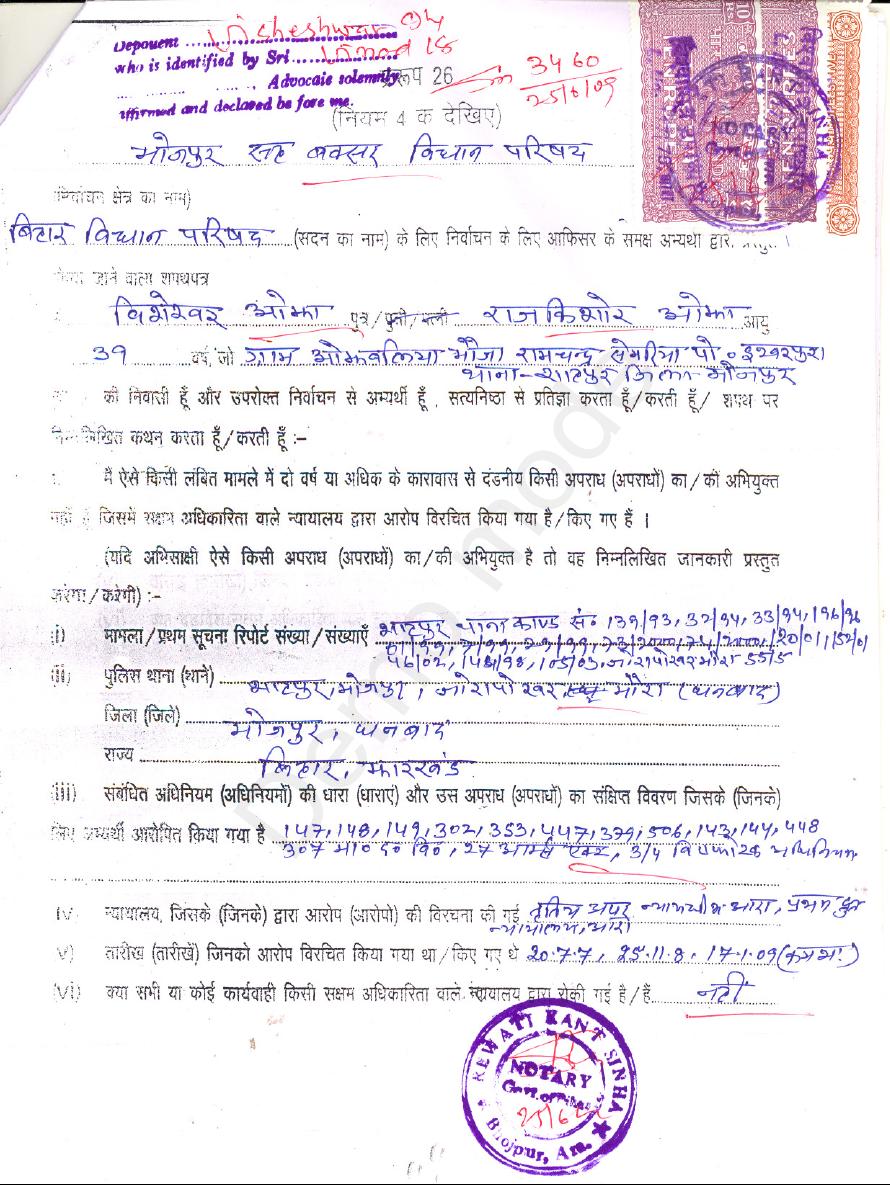 Deponent Visheshwar Ojha
who is identified by Sri
Advocate solemnly
affirmed and declared before me.
3460
25/6/09
प्ररूप 26
(नियम 4 क देखिए)
भोजपुर सह बक्सर विधान परिषद
(निर्वाचन क्षेत्र का नाम)
बिहार विधान परिषद (सदन का नाम) के लिए निर्वाचन के लिए आफिसर के समक्ष अभ्यर्थी द्वारा प्रस्तुत
किया जाने वाला शपथपत्र
विशेश्वर ओझा पुत्र/पुत्री/पत्नी राजकिशोर ओझा आयु
39 वर्ष, जो ग्राम ओझवलिया मौजा रामचन्द्र सेमरिया पो०
थाना-शाहपुर जिला भोजपुर
की निवासी हूँ और उपरोक्त निर्वाचन से अभ्यर्थी हूँ, सत्यनिष्ठा से प्रतिज्ञा करता हूँ/करती हूँ/ शपथ पर
निम्नलिखित कथन करता हूँ/करती हूँ :-
मैं ऐसे किसी लंबित मामले में दो वर्ष या अधिक के कारावास से दंडनीय किसी अपराध (अपराधों) का/की अभियुक्त
नहीं हूँ जिसमें सक्षम अधिकारिता वाले न्यायालय द्वारा आरोप विरचित किया गया है/किए गए हैं ।
(यदि अभिसाक्षी ऐसे किसी अपराध (अपराधों) का/की अभियुक्त है तो वह निम्नलिखित जानकारी प्रस्तुत
करेगा/करेगी) :-
(i) मामला/प्रथम सूचना रिपोर्ट संख्या/संख्याएँ शाहपुर थाना काण्ड सं० 139/93, 32/94, 33/94, 196/96
20/01, 52/01
46/02, 148/98, 105/03, जोरापोखर मौरा 55/5
(ii) पुलिस थाना (थाने) शाहपुर, भोजपुर, जोरापोखर मौरा (धनबाद)
जिला (जिले) भोजपुर, धनबाद
राज्य बिहार, झारखंड
(iii) संबंधित अधिनियम (अधिनियमों) की धारा (धाराएं) और उस अपराध (अपराधों) का संक्षिप्त विवरण जिसके (जिनके)
लिए अभ्यर्थी आरोपित किया गया है 147, 148, 149, 302, 353, 447, 379, 506, 143, 144, 448
307 भा० द० वि०, 27 आर्म्स एक्ट, 3/4 विस्फोटक अधिनियम
iv) न्यायालय, जिसके (जिनके) द्वारा आरोप (आरोपो) की विरचना की गई तृतीय अपर न्यायाधीश आरा, प्रथम द्रुत
न्यायालय, आरा
v) तारीख (तारीखें) जिनको आरोप विरचित किया गया था/किए गए थे 20.7.7, 25.11.8, 17.1.09 (क्रमशः)
(vi) क्या सभी या कोई कार्यवाही किसी सक्षम अधिकारिता वाले न्यायालय द्वारा रोकी गई है/हैं नहीं
REWATI KANT SINHA
NOTARY
Govt. of Bihar
25/6
Bhojpur, Ara.
Demo mode